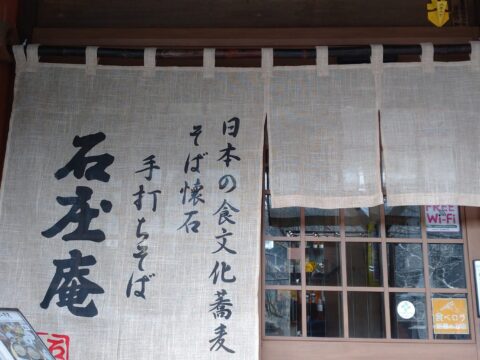 日本の食文化蕎麦
そば懐石
手打ちそば
石庄庵
FREE
Wi-Fi
食べログ